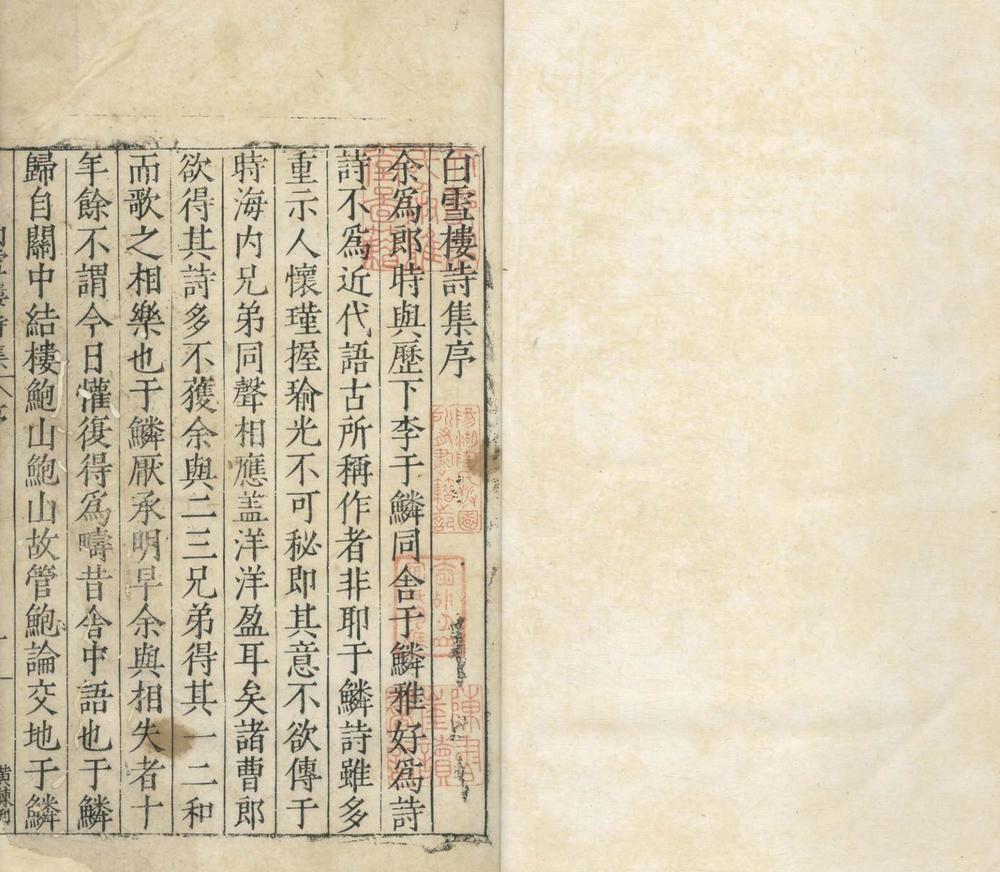 白雪樓詩集序
余爲郎時與歷下李于鱗同舍于鱗雅好爲詩
詩不爲近代語古所稱作者非耶于鱗詩雖多
重示人懷瑾握瑜光不可秘即其意不欲傳于
時海内兄弟同聲相應盖洋洋盈耳矣諸曹郎
欲得其詩多不獲余與二三兄弟得其一二和
而歌之相樂也于鱗厭承明早余與相失者十
年餘不謂今日懽復得爲疇昔舎中語也于鱗
歸自關中結樓鮑山鮑山故管鮑論交地于鱗